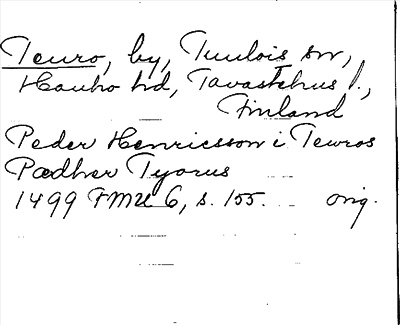 Teuro, by, Tuulois sn,
Hauho hd, Tavastehus l.,
Finland
Peder Henricsson i Tewros
Pædher Tyorus
1499 FMU 6, s. 155. orig.